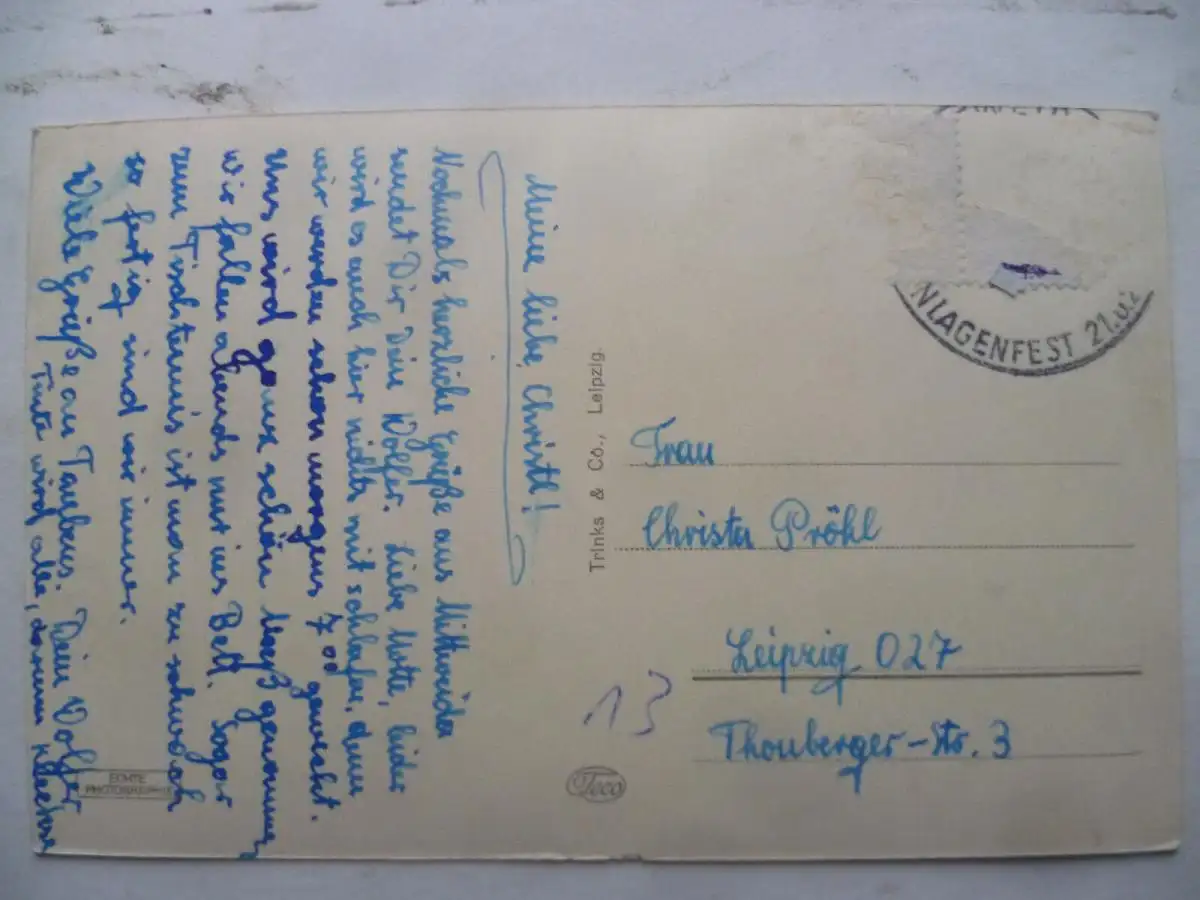 Meine liebe Christl!
Nochmals herzliche Grüße aus Mittweida
sendet Dir Dein Wolfer. Liebe Motte, leider
wird es auch hier nichts mit schlafen, denn
wir werden schon morgens 7 00 geweckt.
Uns wird ganz schön Maß genommen,
wir fallen abends nur ins Bett. Sogar
zum Tischtennis ist man zu schwach
so fertig sind wir immer.
Viele Grüße aus Dein Wolfer
Tinte wird alle, darum Kleckse
ECHTE
PHOTOGRAPHIE
Trinks & Co., Leipzig.
Teco
NLAGENFEST 21.u.2
Frau
Christa Pröhl
Leipzig O27
Thonberger-Str. 3
13